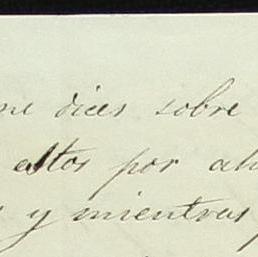 me dices sobre
estos por ah
y mientras